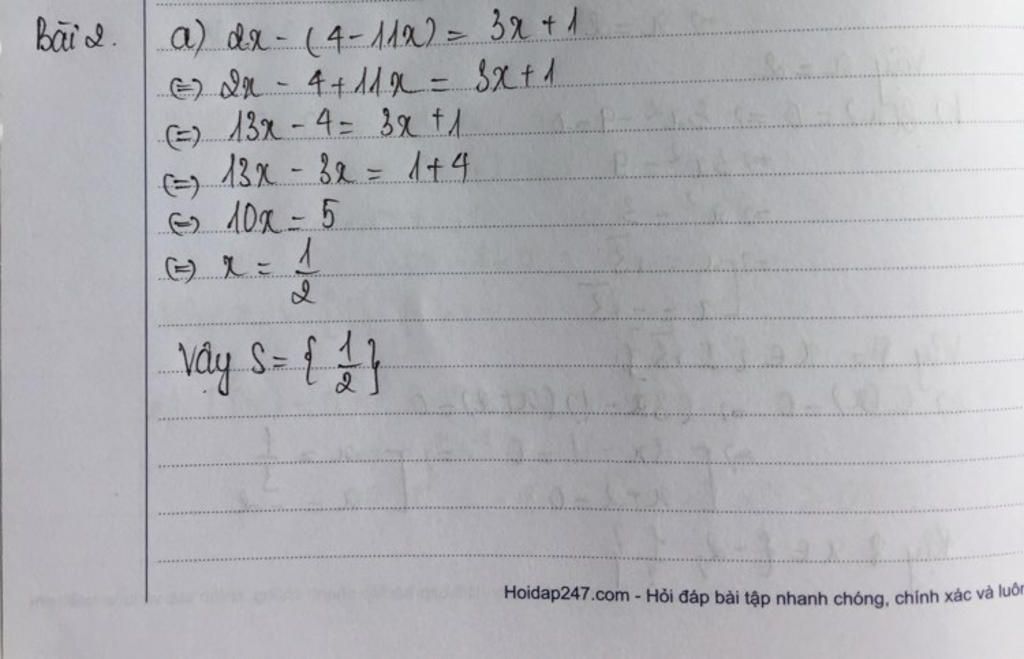 Bài 2. a) 2x - (4 - 11x) = 3x + 1
(=) 2x - 4 + 11x = 3x + 1
(=) 13x - 4 = 3x + 1
(=) 13x - 3x = 1 + 4
(=) 10x = 5
(=) x = 1/2
Vậy S = { 1/2 }
Hoidap247.com - Hỏi đáp bài tập nhanh chóng, chính xác và luôn